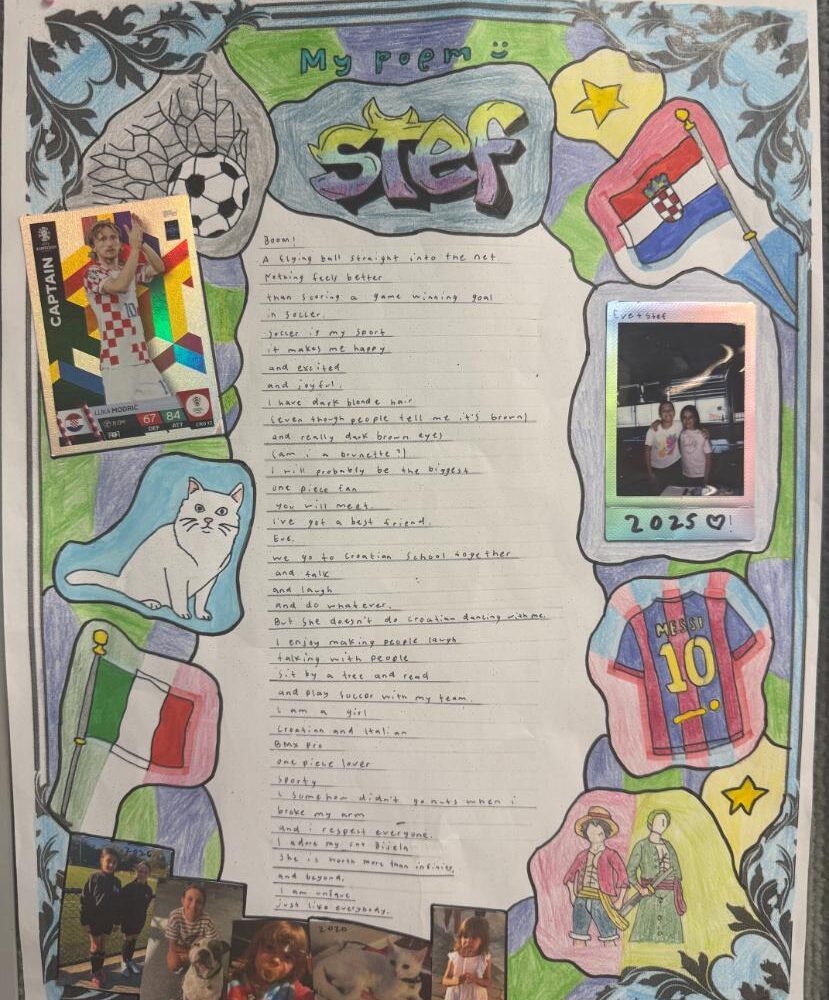 My poem
stef
Boom!
A flying ball straight into the net
Nothing feels better
than scoring a game winning goal
in soccer.
Soccer is my sport
it makes me happy
and excited
and joyful.
I have dark blonde hair
(even though people tell me it's brown)
and really dark brown eyes
(am i a brunette?)
I will probably be the biggest
one piece fan
you will meet.
i've got a best friend.
Eve.
we go to Croatian School together
and talk
and laugh
and do whatever.
But She doesn't do Croatian dancing with me.
I enjoy making people laugh
talking with people
Sit by a tree and read
and play Soccer with my team
I am a girl
Croatian and Italian
BMX Pro
one piece lover
Sporty
I somehow didn't go nuts when i
broke my arm
and i respect everyone.
I adore my cat Bijela
She is worth more than infinity,
and beyond.
I am unique
just like everybody.
CAPTAIN
10
LUKA MODRIĆ
67
DEF
84
ATT
Eve + Stef
2025 ♡!
MESSI
10
2020